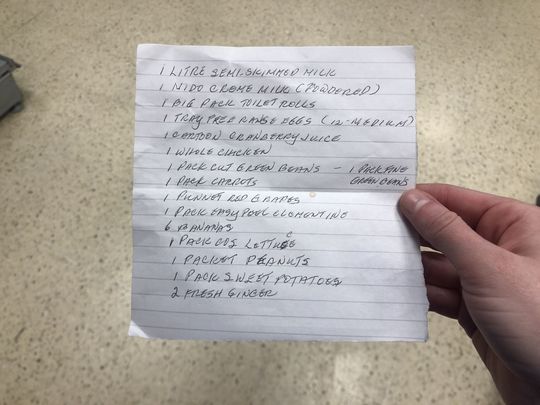 1 LITRE SEMI-SKIMMED MILK
1 NIDO CREME MILK (POWDERED)
1 BIG PACK TOILET ROLLS
1 TRAY FREE RANGE EGGS (12-MEDIUM)
1 CARTON CRANBERRY JUICE
1 WHOLE CHICKEN
1 PACK CUT GREEN BEANS - 1 PACK FINE GREEN BEANS
1 PACK CARROTS
1 PUNNET RED GRAPES
1 PACK EASY PEEL CLEMENTINE
6 BANANAS
1 PACK COS LETTUCE
1 PACKET PEANUTS
1 PACK SWEET POTATOES
2 FRESH GINGER